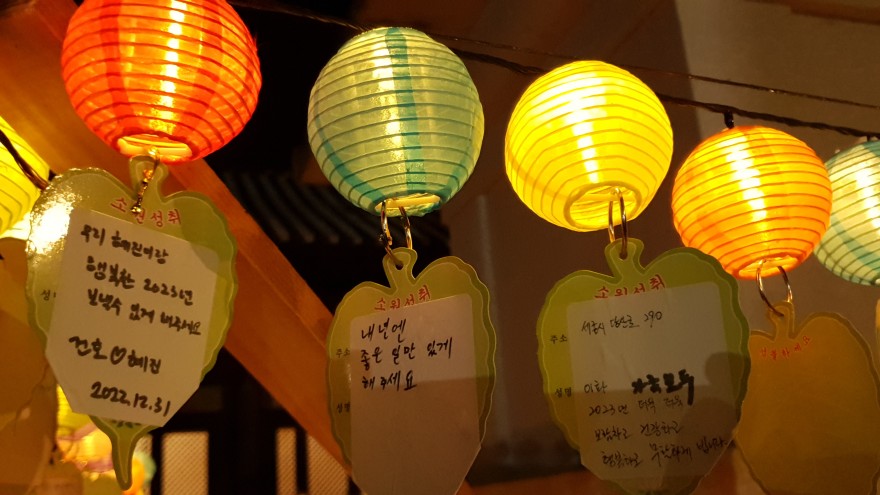 소원성취
우리 혜진이랑
행복한 2023년
보낼수 있게 해주세요
건호♡혜진
2022.12.31
소원성취
주소
내년엔
좋은 일만 있게
해주세요
성명
소원성취
주소 세종시 290
성명
2023년
건강하고
행복하고